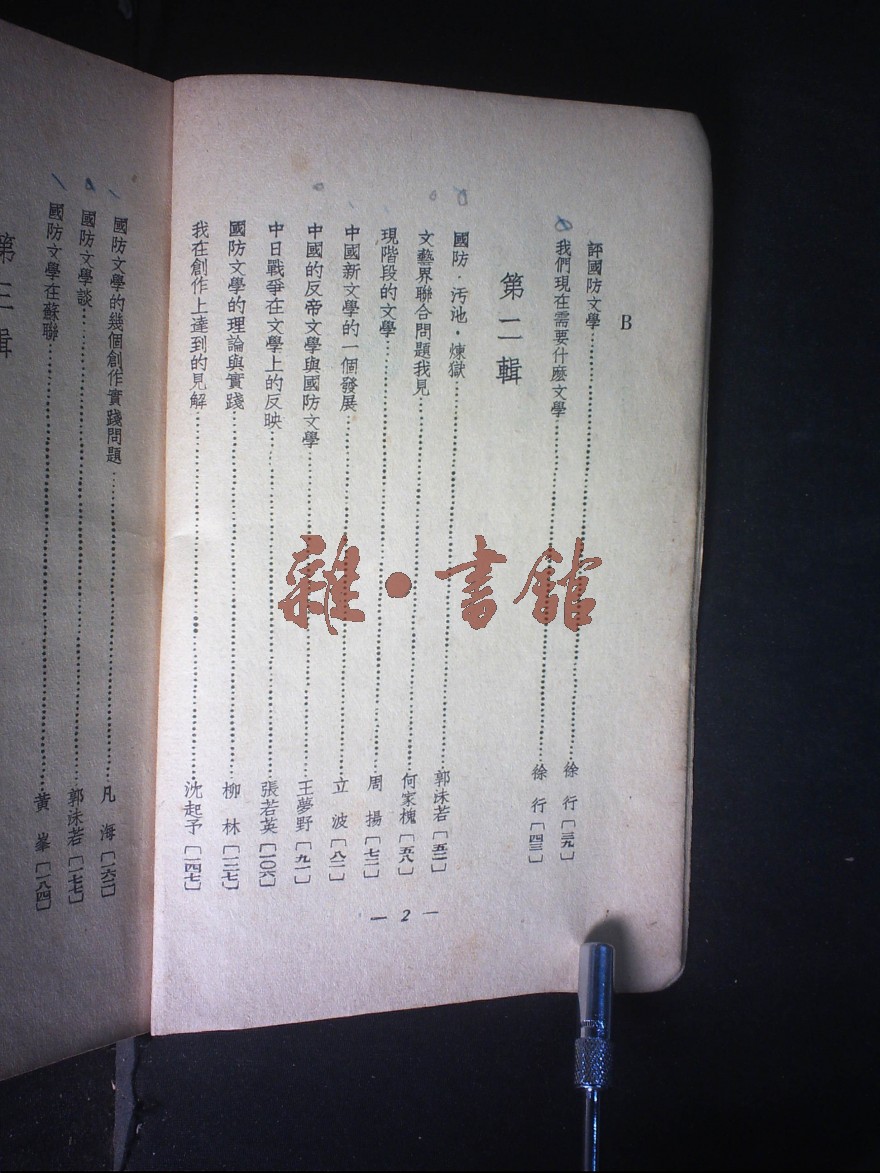 B
評國防文學 徐行 〔三九〕
我們現在需要什麽文學 徐行 〔四三〕
第二輯
國防·汚池·煉獄 郭沫若 〔五二〕
文藝界聯合問題我見 何家槐 〔五八〕
現階段的文學 周揚 〔七二〕
中國新文學的一個發展 立波 〔八二〕
中國的反帝文學與國防文學 王夢野 〔九二〕
中日戰爭在文學上的反映 張若英 〔一〇六〕
國防文學的理論與實踐 柳林 〔一二七〕
我在創作上達到的見解 沈起予 〔一四七〕
— 2 —
國防文學的幾個創作實踐問題 凡海 〔一六二〕
國防文學談 郭沫若 〔一七七〕
國防文學在蘇聯 黃峯 〔一八四〕
第三輯
雜·書館